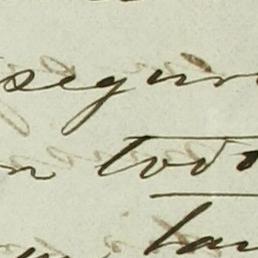 segur
n todo
lan